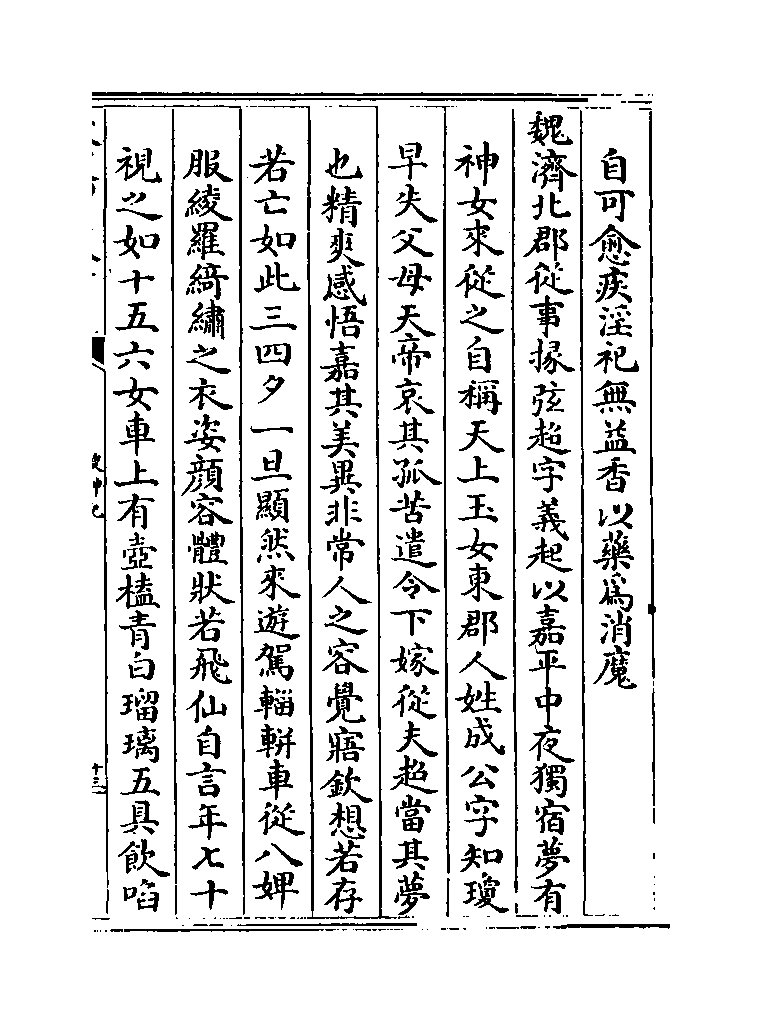 自可愈疾淫祀無益香以藥為消魔
魏濟北郡從事掾弦超字義起以嘉平中夜獨宿夢有
神女來從之自稱天上玉女東郡人姓成公字知瓊
早失父母天帝哀其孤苦遣令下嫁從夫超當其夢
也精爽感悟嘉其美異非常人之容覺寤欽想若存
若亡如此三四夕一旦顯然來遊駕輜軿車從八婢
服綾羅綺繡之衣姿顏容體狀若飛仙自言年七十
視之如十五六女車上有壺榼青白瑠璃五具飲啗
搜神記
十三